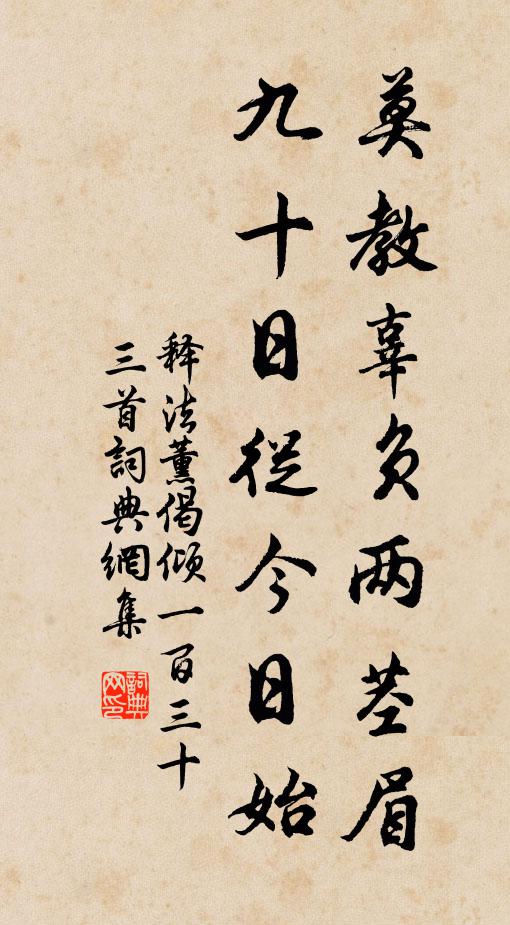 莫教辜负两茎眉
九十日從今日始
释法薰偈倾一百三十
三首詞典網集
詞典网印